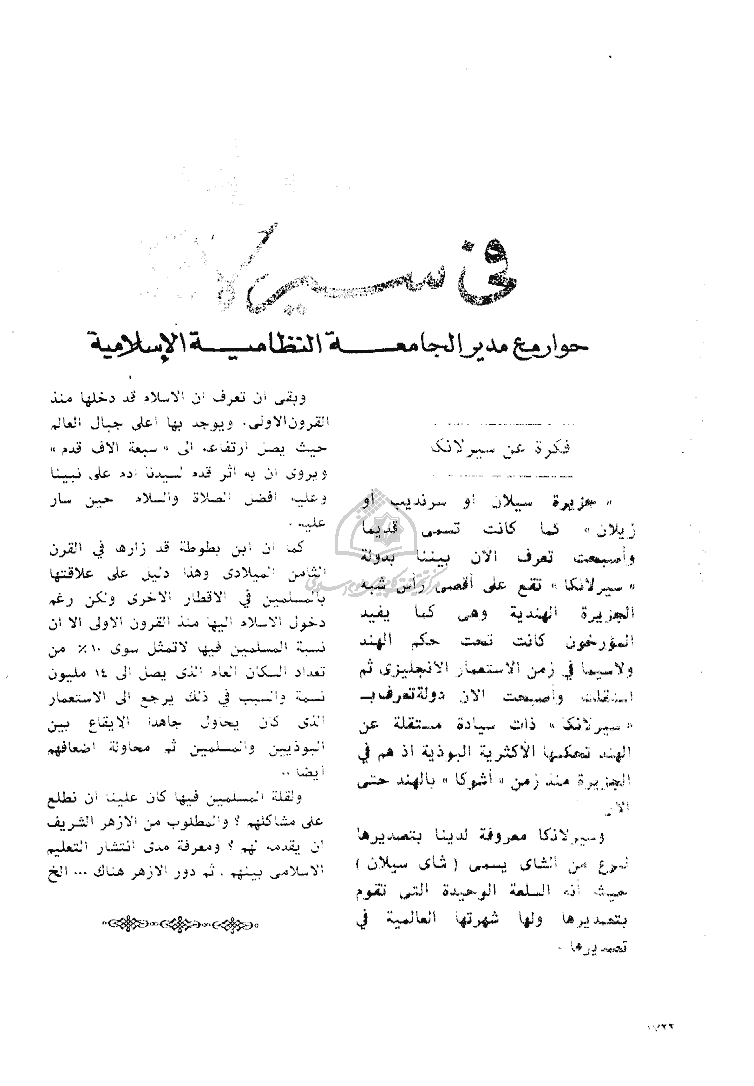 في سيرلانكا
حوار مع مدير الجامعة النظامية الإسلامية
فكرة عن سيرلانكا
« جزيرة سيلان أو سرنديب أو
زيلان » كما كانت تسمى قديما
وأصبحت تعرف الان بيننا بدولة
« سيرلانكا » تقع على أقصى رأس شبه
الجزيرة الهندية وهى كما يفيد
المؤرخون كانت تحت حكم الهند
ولاسيما في زمن الاستعمار الانجليزى ثم
استقلت وأصبحت الان دولة تعرف بـ
« سيرلانكا » ذات سيادة مستقلة عن
الهند تحكمها الأكثرية البوذية اذ هم في
الجزيرة منذ زمن « أشوكا » بالهند حتى
الان
وسيرلانكا معروفة لدينا بتصديرها
لنوع من الشاى يسمى ( شاى سيلان )
حيث أنه السلعة الوحيدة التى تقوم
بتصديرها ولها شهرتها العالمية في
تصديرها .
وبقى أن تعرف ان الاسلام قد دخلها منذ
القرون الاولى . ويوجد بها أعلى جبال العالم
حيث يصل ارتفاعه الى « سبعة الاف قدم »
ويروى ان به اثر قدم لسيدنا ادم على نبينا
وعليه افضل الصلاة والسلام حين سار
عليه .
كما ان ابن بطوطة قد زارها في القرن
الثامن الميلادى وهذا دليل على علاقتها
بالمسلمين في الاقطار الاخرى ولكن رغم
دخول الاسلام اليها منذ القرون الاولى الا ان
نسبة المسلمين فيها لاتمثل سوى ١٠٪ من
تعداد السكان العام الذى يصل الى ١٤ مليون
نسمة والسبب في ذلك يرجع الى الاستعمار
الذى كان يحاول جاهدا الايقاع بين
البوذيين والمسلمين ثم محاولة اضعافهم
أيضا ..
ولقلة المسلمين فيها كان علينا ان نطلع
على مشاكلهم ؟ والمطلوب من الازهر الشريف
ان يقدمه لهم ؟ ومعرفة مدى انتشار التعليم
الاسلامى بينهم . ثم دور الازهر هناك ... الخ